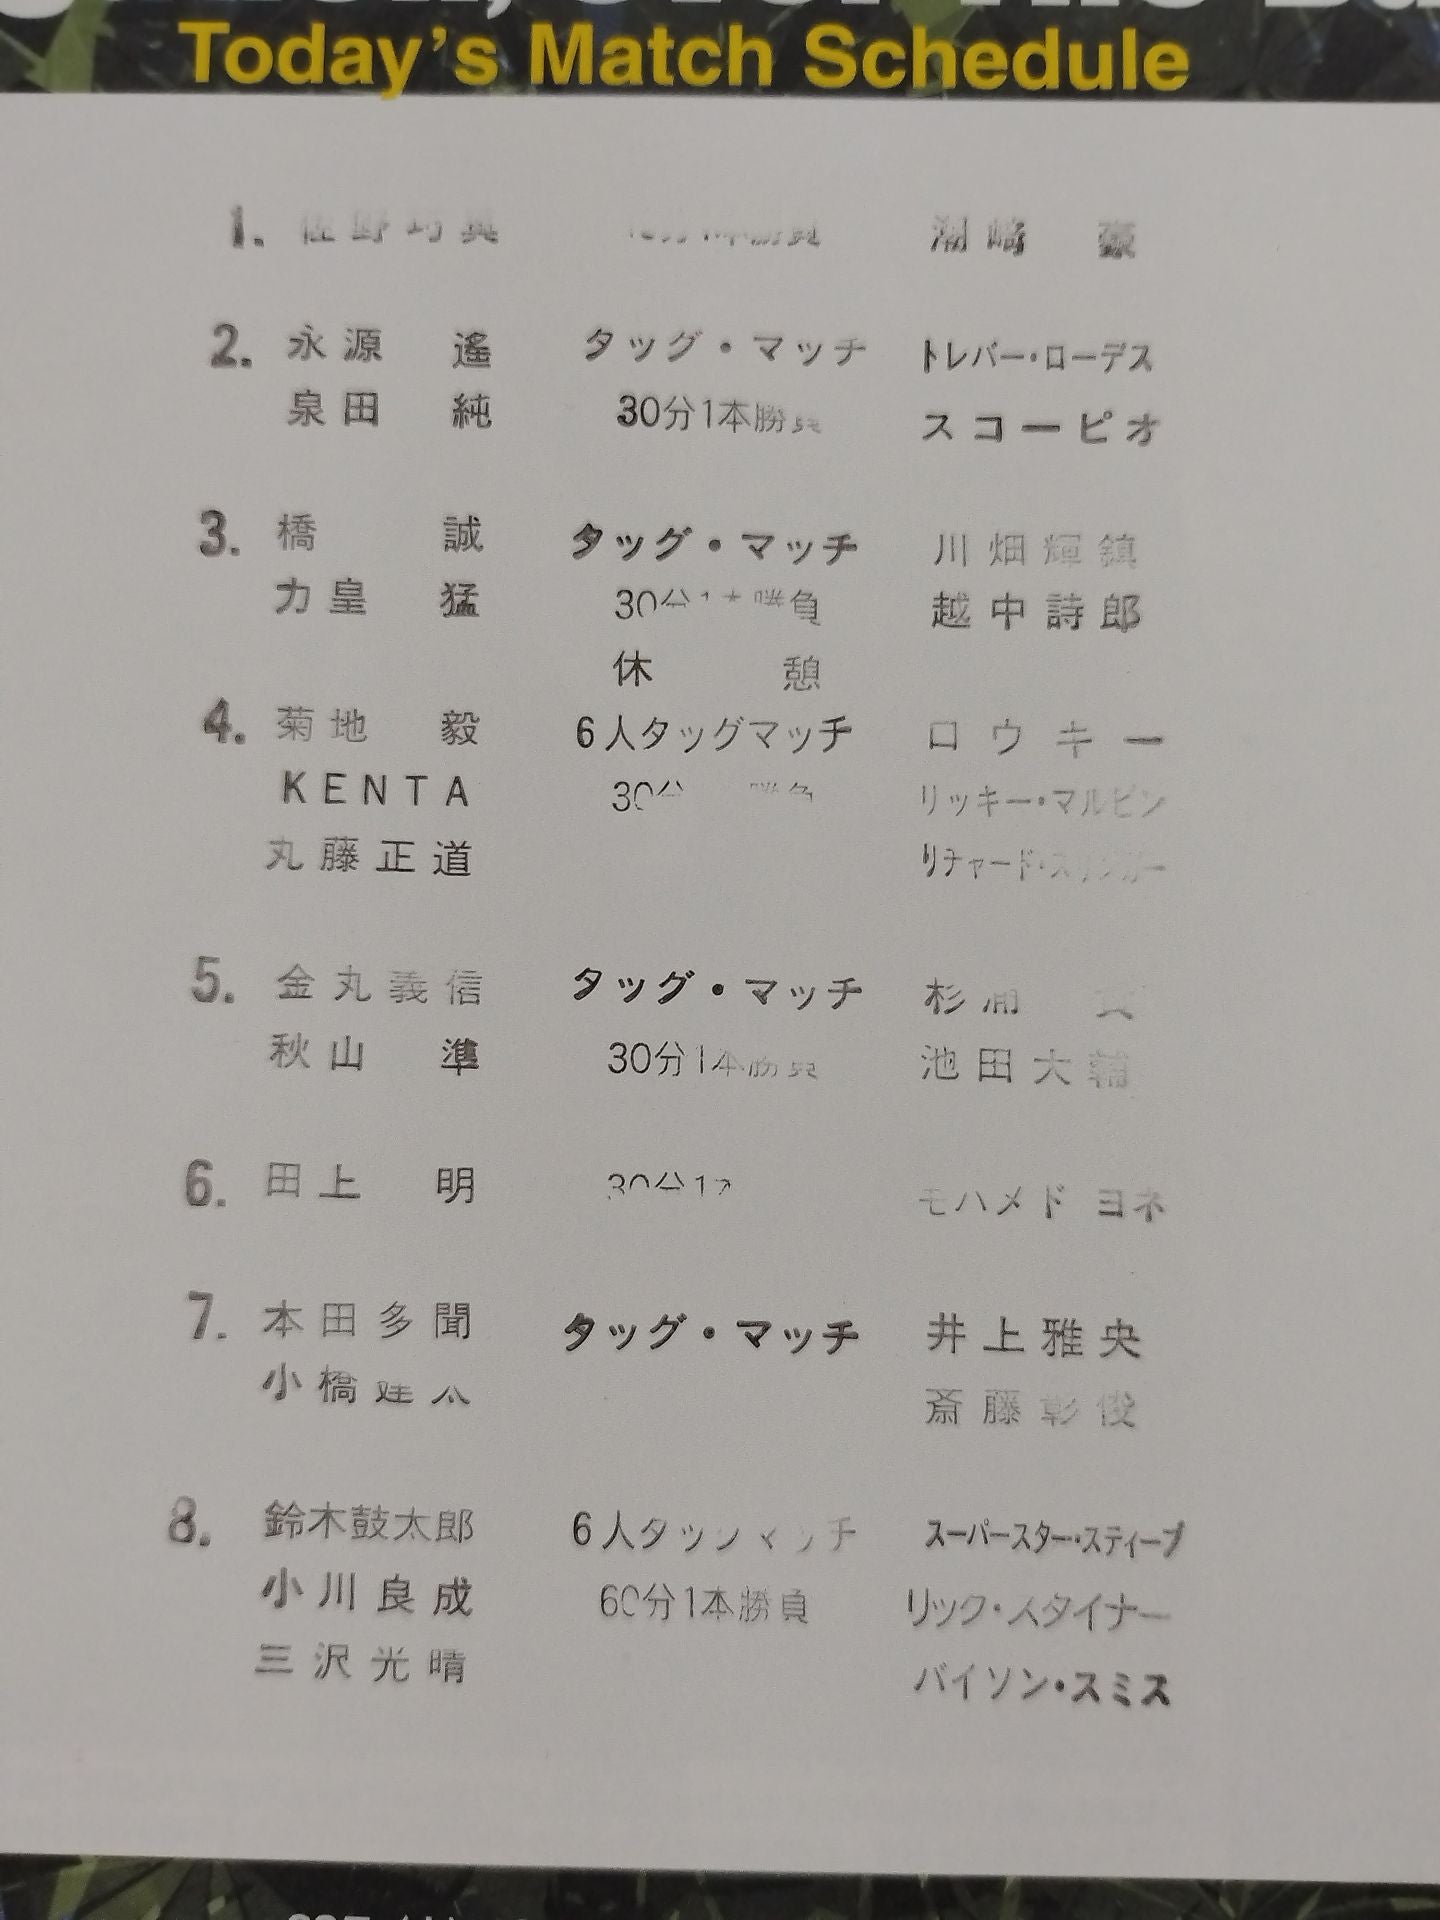 Today's Match Schedule
1. 佐野巧真 潮﨑 豪
2. 永源 遙 タッグ・マッチ トレバー・ローデス
泉田 純 30分1本勝負 スコーピオ
3. 橋 誠 タッグ・マッチ 川畑輝鎮
力皇 猛 30分1本勝負 越中詩郎
休 憩
4. 菊地 毅 6人タッグマッチ ロウキー
KENTA 30分 勝負 リッキー・マルビン
丸藤正道 リチャード・スリンガー
5. 金丸義信 タッグ・マッチ 杉浦 貴
秋山 準 30分1本勝負 池田大輔
6. 田上 明 30分1本 モハメド ヨネ
7. 本田多聞 タッグ・マッチ 井上雅央
小橋建太 斎藤彰俊
8. 鈴木鼓太郎 6人タッグマッチ スーパースター・スティーブ
小川良成 60分1本勝負 リック・スタイナー
三沢光晴 バイソン・スミス